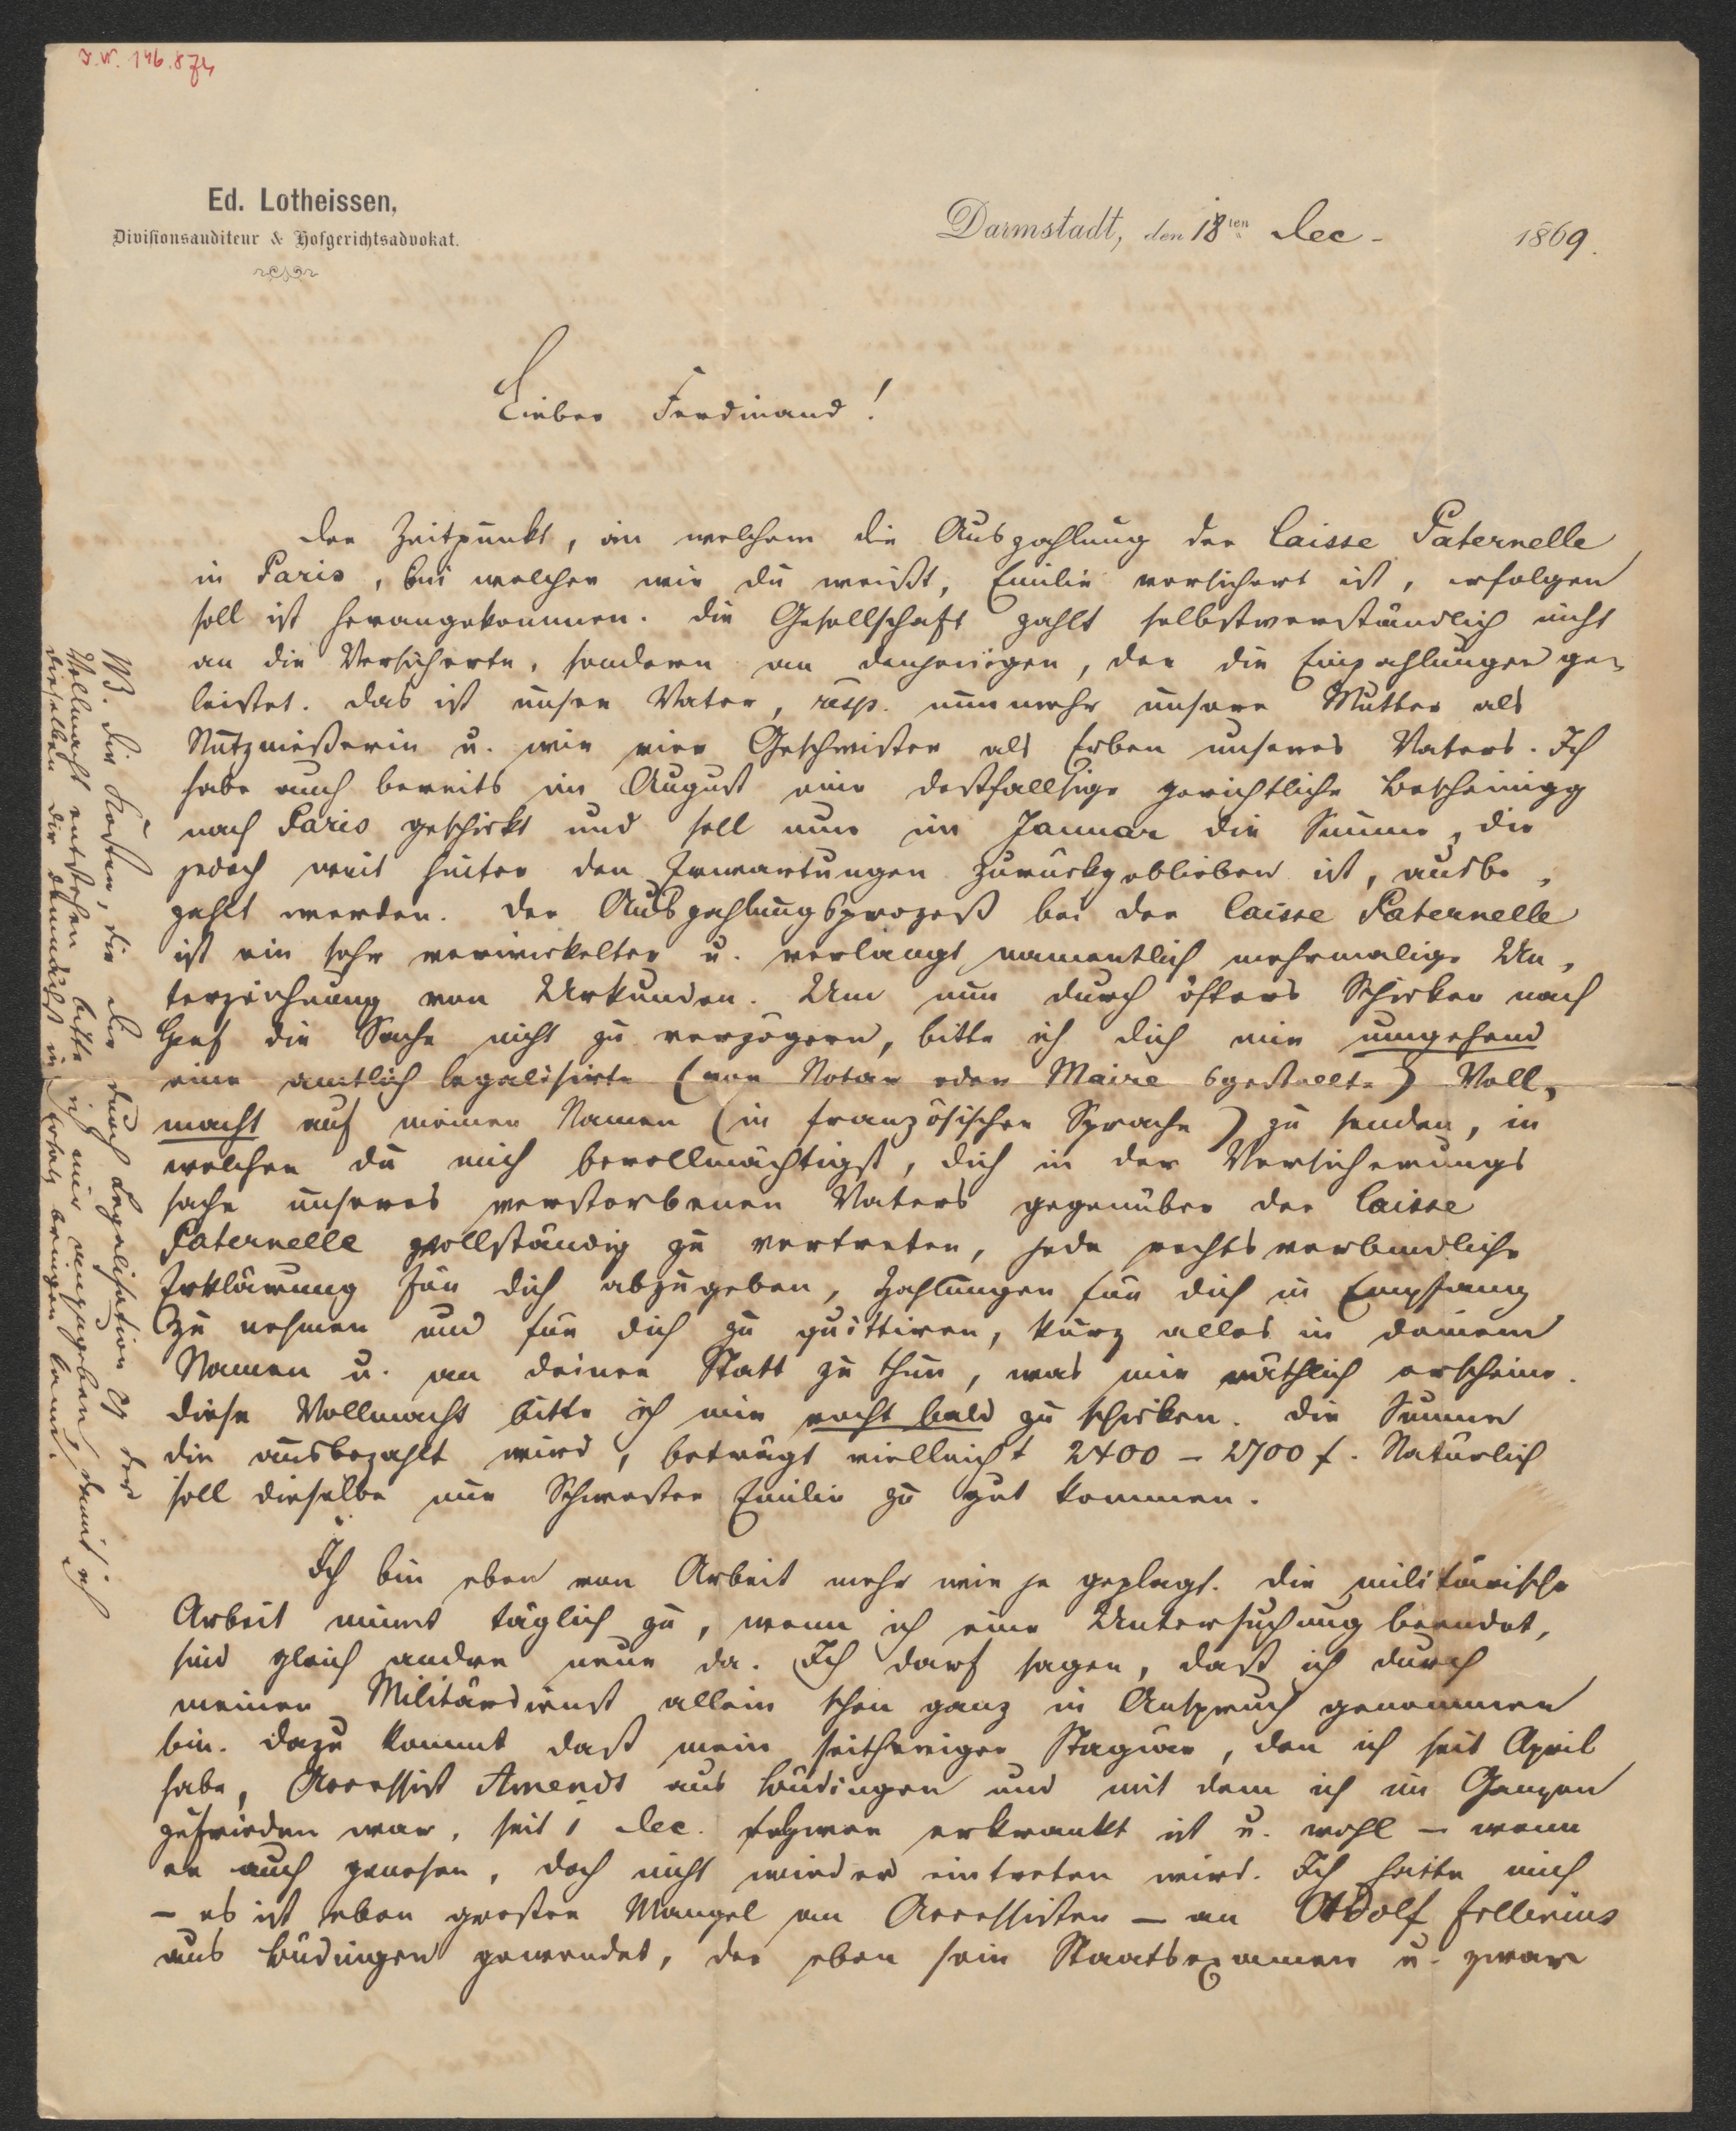 I.N. 146.874
Ed. Lotheissen,
Divisionsauditeur & Hofgerichtsadvokat.
Darmstadt, den 18ten Dec. 1869.
Lieber Ferdinand!
Der Zeitpunkt, in welchem die Auszahlung der Caisse Paternelle
in Paris, bei welcher wie du weißt, Emilie versichert ist, erfolgen
soll ist herangekommen. Die Gesellschaft zahlt selbstverständlich nicht
an die Versicherte, sondern an denjenigen, der die Einzahlungen ge-
leistet. Das ist unser Vater, resp. nunmehr unsere Mutter als
Nutznießerin u. wir vier Geschwister als Erben unseres Vaters. Ich
habe auch bereits im August eine desfallsige gerichtliche Bescheinigg
nach Paris geschickt und soll nun im Januar die Summe, die
jedoch weit hinter den Erwartungen zurückgeblieben ist, ausbe-
zahlt werden. Der Auszahlungsprozeß bei der Caisse Paternelle
ist ein sehr verwickelter u. verlangt namentlich mehrmalige Un-
terzeichnung von Urkunden. Um nun durch öfteres Schicken nach
Genf die Sache nicht zu verzögern, bitte ich dich mir umgehend
eine amtlich legalisirte (von Notar oder Maire ) Voll-
macht auf meinen Namen (in französischer Sprache) zu senden, in
welcher du mich bevollmächtigst, dich in der Versicherungs
sache unseres verstorbenen Vaters gegenüber der Caisse
Paternelle vollständig zu vertreten, jede rechtsverbindliche
Erklärung für dich abzugeben, Zahlungen für dich in Empfang
zu nehmen und für dich zu quittiren, kurz alles in deinem
Namen u. an deiner Statt zu thun, was mir räthlich erscheine.
Diese Vollmacht bitte ich mir recht bald zu schicken. Die Summe
die ausbezahlt wird, beträgt vielleicht 2400 – 2700 f. Natürlich
soll dieselbe nur Schwester Emilie zu gut kommen.
Ich bin eben von Arbeit mehr wie je geplagt. Die militärische
Arbeit nimmt täglich zu, wenn ich eine Untersuchung beendet,
sind gleich andere neue da. Ich darf sagen, daß ich durch
meinen Militärdienst allein schon ganz in Anspruch genommen
bin. Dazu kommt daß mein seitheriger Stagiär, den ich seit April
habe, Accessist Amendt aus Büdingen und mit dem ich im Ganzen
zufrieden war, seit 1 Dec. schwer erkrankt ist u. wohl – wenn
er auch genesen, doch nicht wieder eintreten wird. Ich hatte mich
– es ist eben großer Mangel an Accessisten – an Adolf Fellerius
aus Büdingen gewendet, der eben sein Staatsexamen u. zwar
NB. Die Kosten, die dir durch Legalisation der
Vollmacht entstehen bitte ich mir anzugeben, damit ich
dieselben dir demnächst in Ersatz bringen kann.